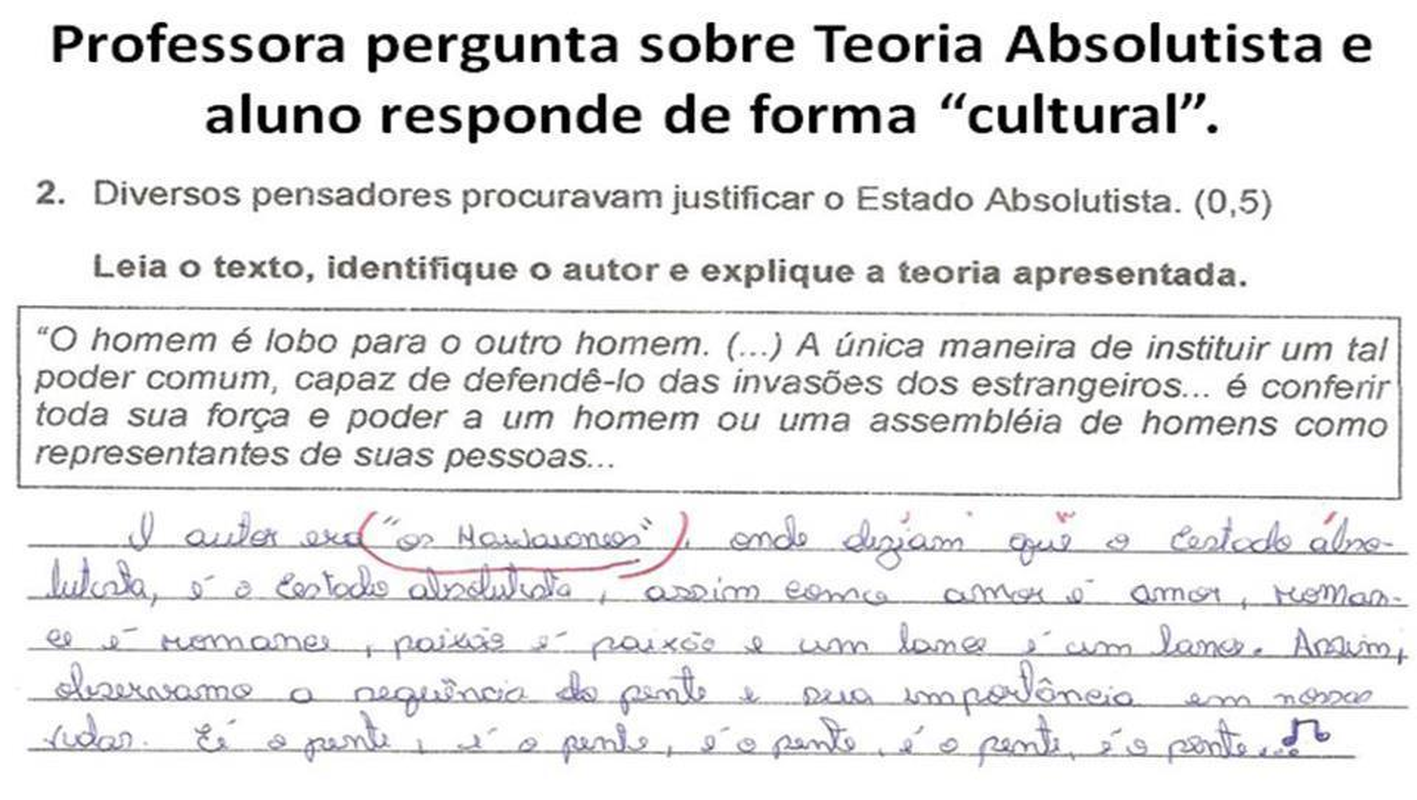 Professora pergunta sobre Teoria Absolutista e
aluno responde de forma “cultural”.
2. Diversos pensadores procuravam justificar o Estado Absolutista. (0,5)
Leia o texto, identifique o autor e explique a teoria apresentada.
“O homem é lobo para o outro homem. (...) A única maneira de instituir um tal
poder comum, capaz de defendê-lo das invasões dos estrangeiros... é conferir
toda sua força e poder a um homem ou uma assembléia de homens como
representantes de suas pessoas...
O autor era (“os Hawaianos”), onde diziam que o Estado abso-
lutista, é o Estado absolutista, assim como amor é amor, roman-
ce é romance, paixão é paixão e um lance é um lance. Assim,
observamo a sequência do pente e sua importância em nossas
vidas. É o pente, é o pente, é o pente, é o pente, é o pente...